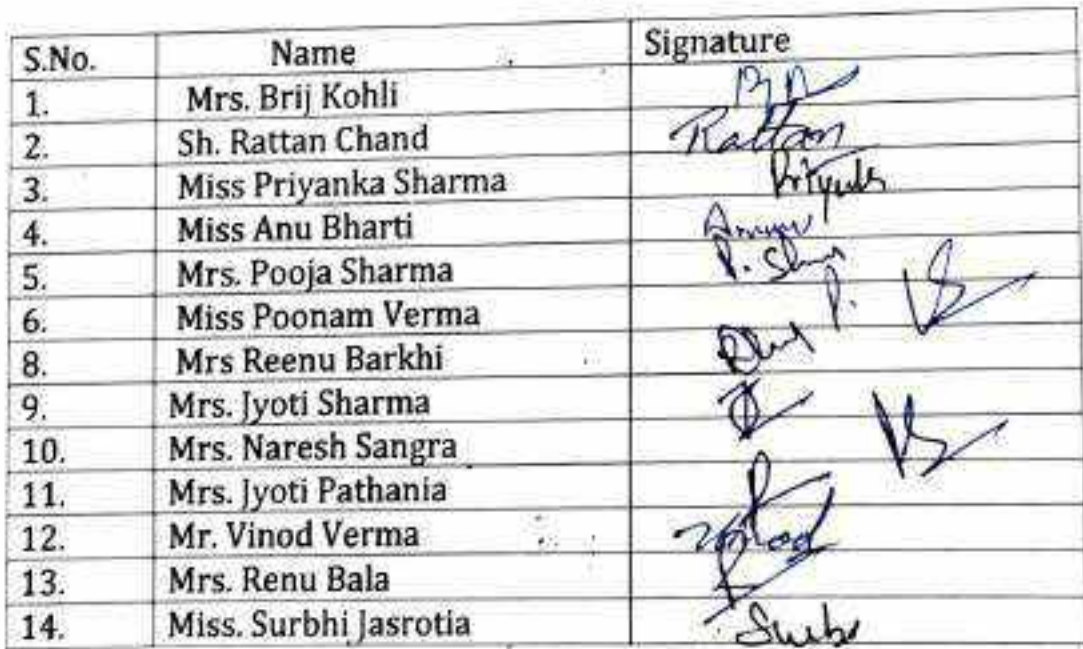 S.No. Name Signature
1. Mrs. Brij Kohli
2. Sh. Rattan Chand Rattan
3. Miss Priyanka Sharma
4. Miss Anu Bharti
5. Mrs. Pooja Sharma
6. Miss Poonam Verma
8. Mrs Reenu Barkhi
9. Mrs. Jyoti Sharma
10. Mrs. Naresh Sangra
11. Mrs. Jyoti Pathania
12. Mr. Vinod Verma
13. Mrs. Renu Bala
14. Miss. Surbhi Jasrotia